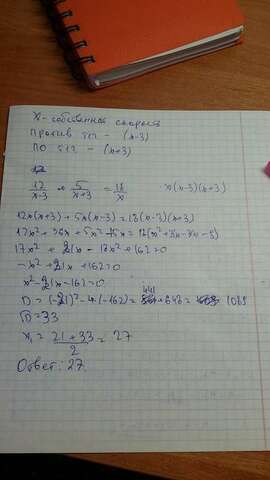 X - собственная скорость
против теч - (x-3)
по теч - (x+3)
12/x-3 + 5/x+3 = 18/x x(x-3)(x+3)
12x(x+3) + 5x(x-3) = 18(x-3)(x+3)
17x² + 21x - 18x² + 162 = 0
-x² + 21x + 162 = 0
x² - 21x - 162 = 0
D = (-21)² - 4·(-162) = 441 + 648 = 1089
√D = 33
x₁ = 21 + 33 / 2 = 27
Ответ: 27.